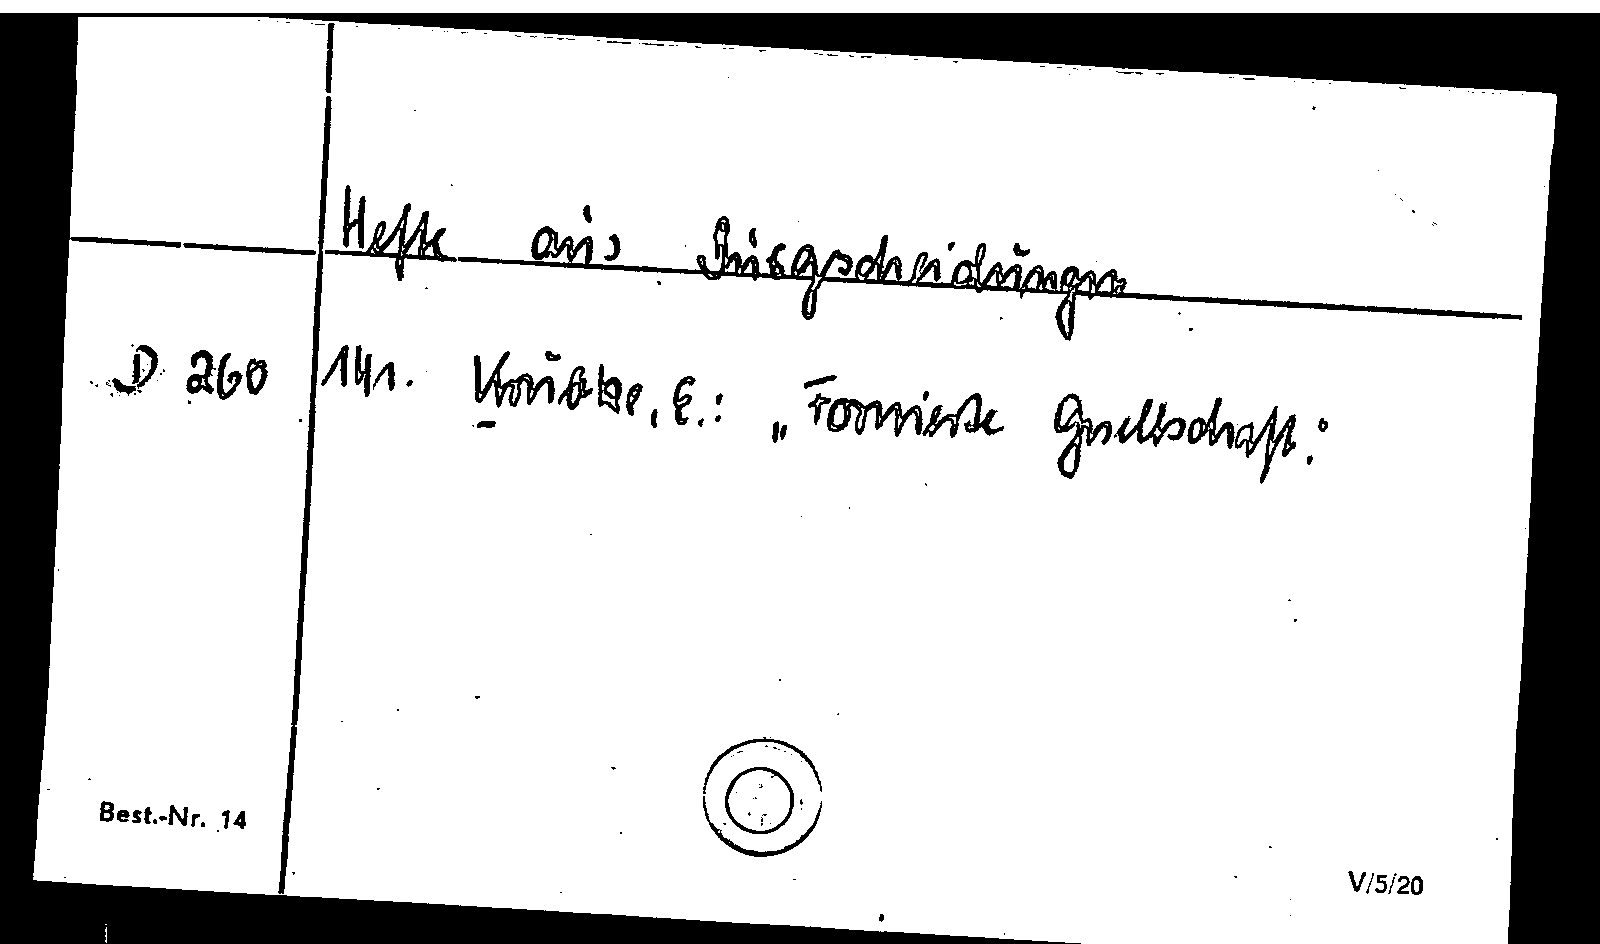 Hefte aus Burgscheidungen
D 260 141. Krubke, E.: „Formierte Gesellschaft.“
Best.-Nr. 14
V/5/20